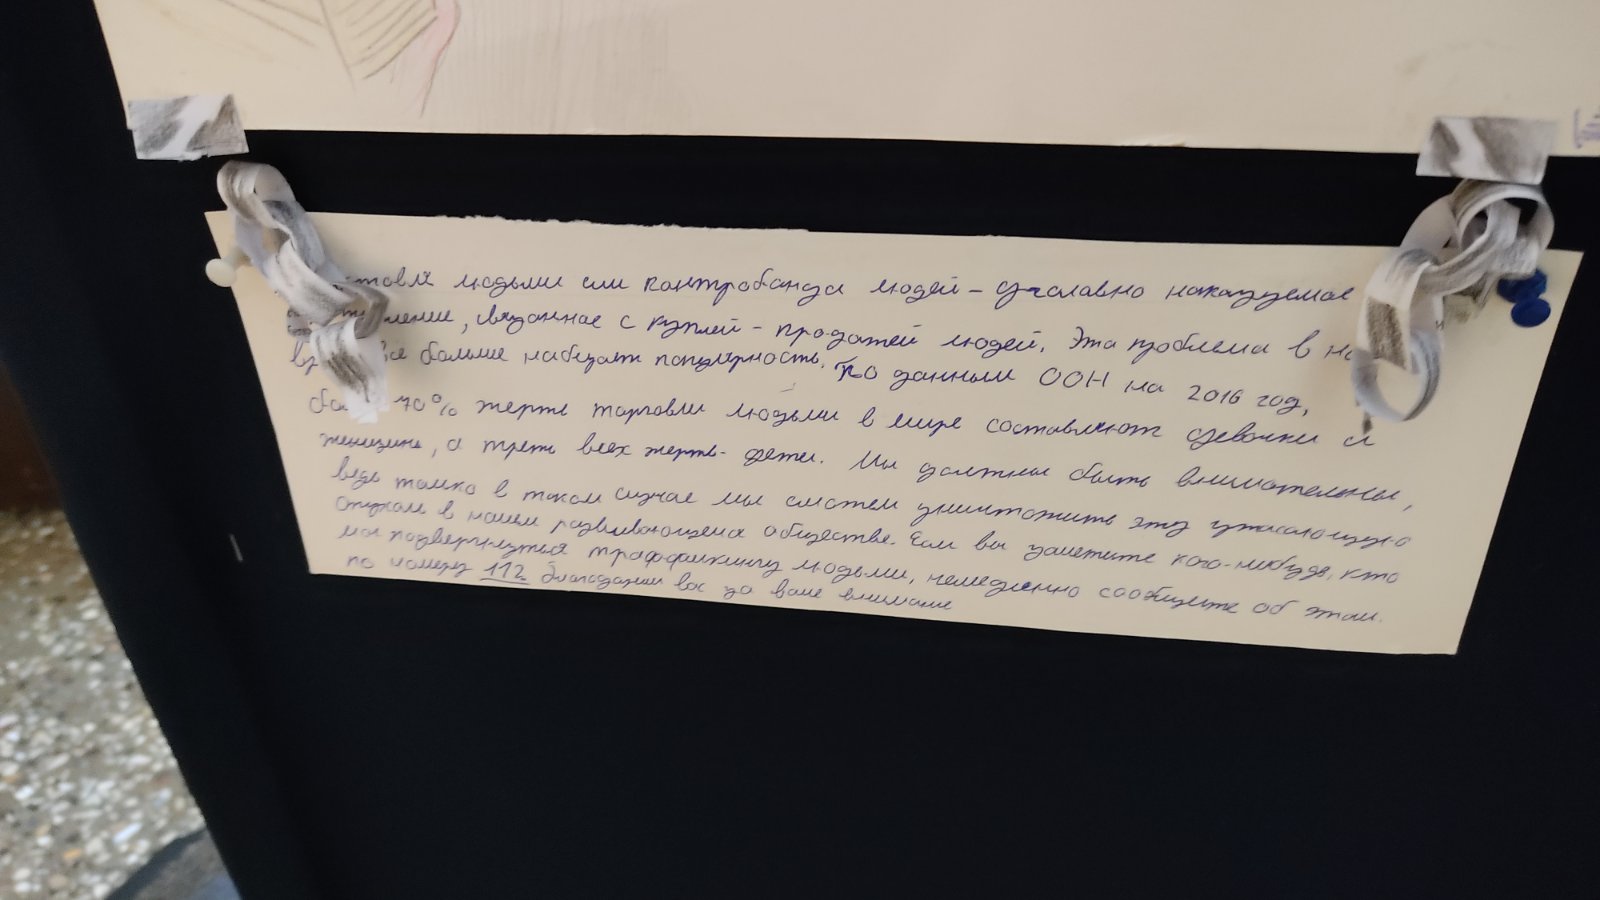 товля людьми или контрабанда людей - уголовно наказуемое
пление, связанное с куплей - продажей людей. Эта проблема в на
вр все больше набирает популярность. По данным ООН на 2016 год,
бо 70% жертв торговли людьми в мире составляют девочки и
женщины, а треть всех жертв - дети. Мы должны быть внимательны,
ведь только в таком случае мы сможем уничтожить эту ужасающую
в нашем развивающемся обществе. Если вы заметите кого-нибудь, кто
мог подвергнуться траффикингу людьми, немедленно сообщите об этом.
по номеру 112 благодарим вас за ваше внимание